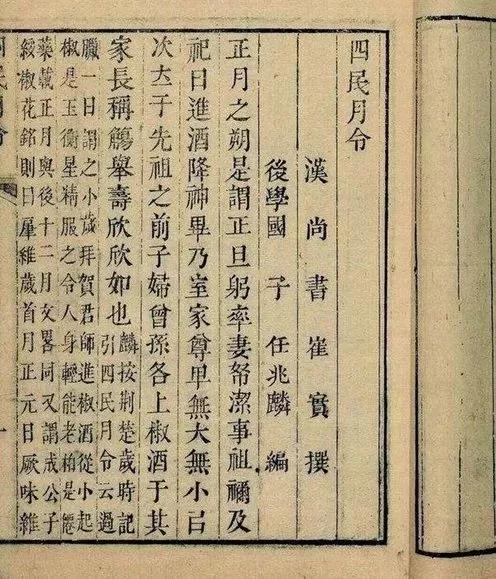 四民月令
漢尚書崔實撰
後學國子任兆麟編
正月之朔是謂正旦躬率妻帑潔事祖禰及
祀日進酒降神畢乃室家尊卑無大無小㠯
次㘴于先祖之前子婦曾孫各上椒酒于其
家長稱觴舉壽欣欣如也麟按荆楚歲時記
引四民月令云過
臘一日謂之小歲拜賀君師進椒酒從小起
椒是玉衡星精服之令人身輕能老柏是僊
藥載正月與後十二月文畧同又謂成公子
綏椒花銘則曰肇維歲首月正元日厥味維